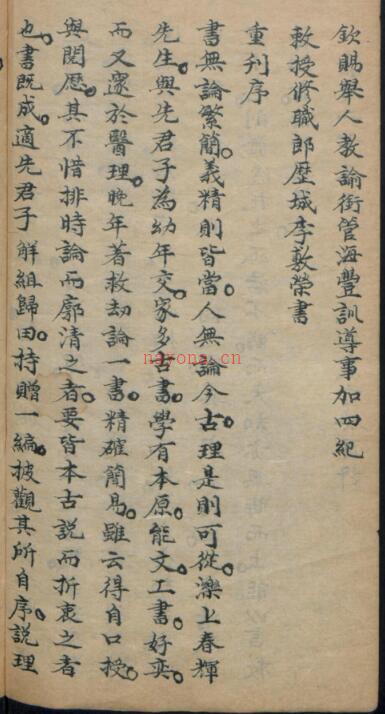 欽賜舉人教諭銜管海豐訓導事加四紀
敕授修職郎歷城李敷榮書
重刊序
書無論繁簡。義精則皆當。人無論今古。理是則可從。濼上春輝
先生。與先君子為幼年交。家多古書。學有本原。能文。工書。好奕。
而又邃於醫理。晚年著救劫論一書。精確簡易。雖云得自口授。
與閱歷。其不惜排時論而廓清之者。要皆本古說而折衷之者
也。書既成。適先君子解組歸田。持贈一編。披觀其所自序。說理
nayong.cn